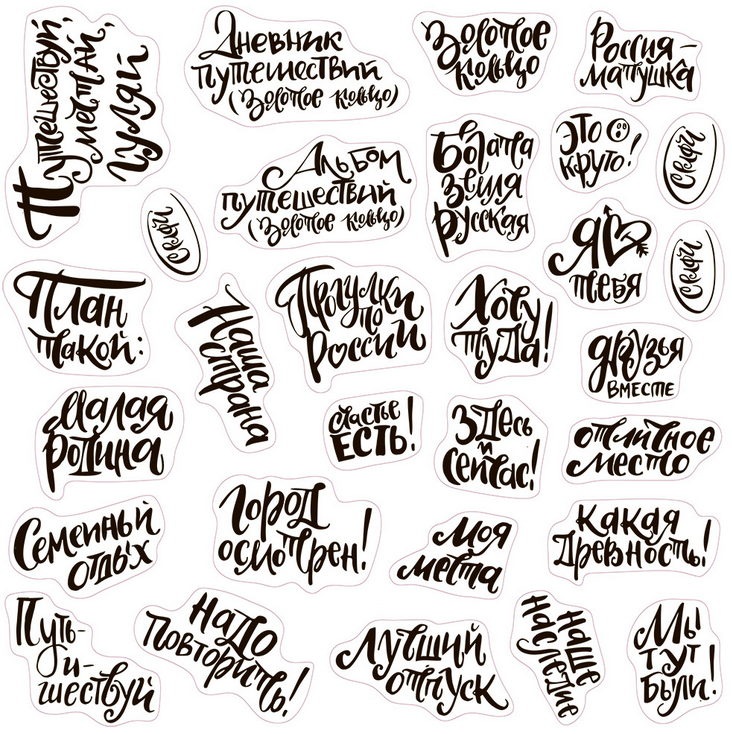 Путешествуй,
мечтай,
гуляй
Дневник
путешествий
(Золотое кольцо)
Золотое
кольцо
Россия-
матушка
Альбом
путешествий
(Золотое кольцо)
Богата
земля
русская
Это
круто!
Селфи
Селфи
Я
тебя
Селфи
План
такой:
Наша
страна
Прогулки
по
России
Хочу
туда!
друзья
вместе
Малая
родина
счастье
есть!
Здесь
и
сейчас!
отличное
место
Семейный
отдых
Город
осмотрен!
Моя
мечта
Какая
древность!
Путь-
и-
шествуй
Надо
повторить!
Лучший
отпуск
Наше
наследие
Мы
тут
были!